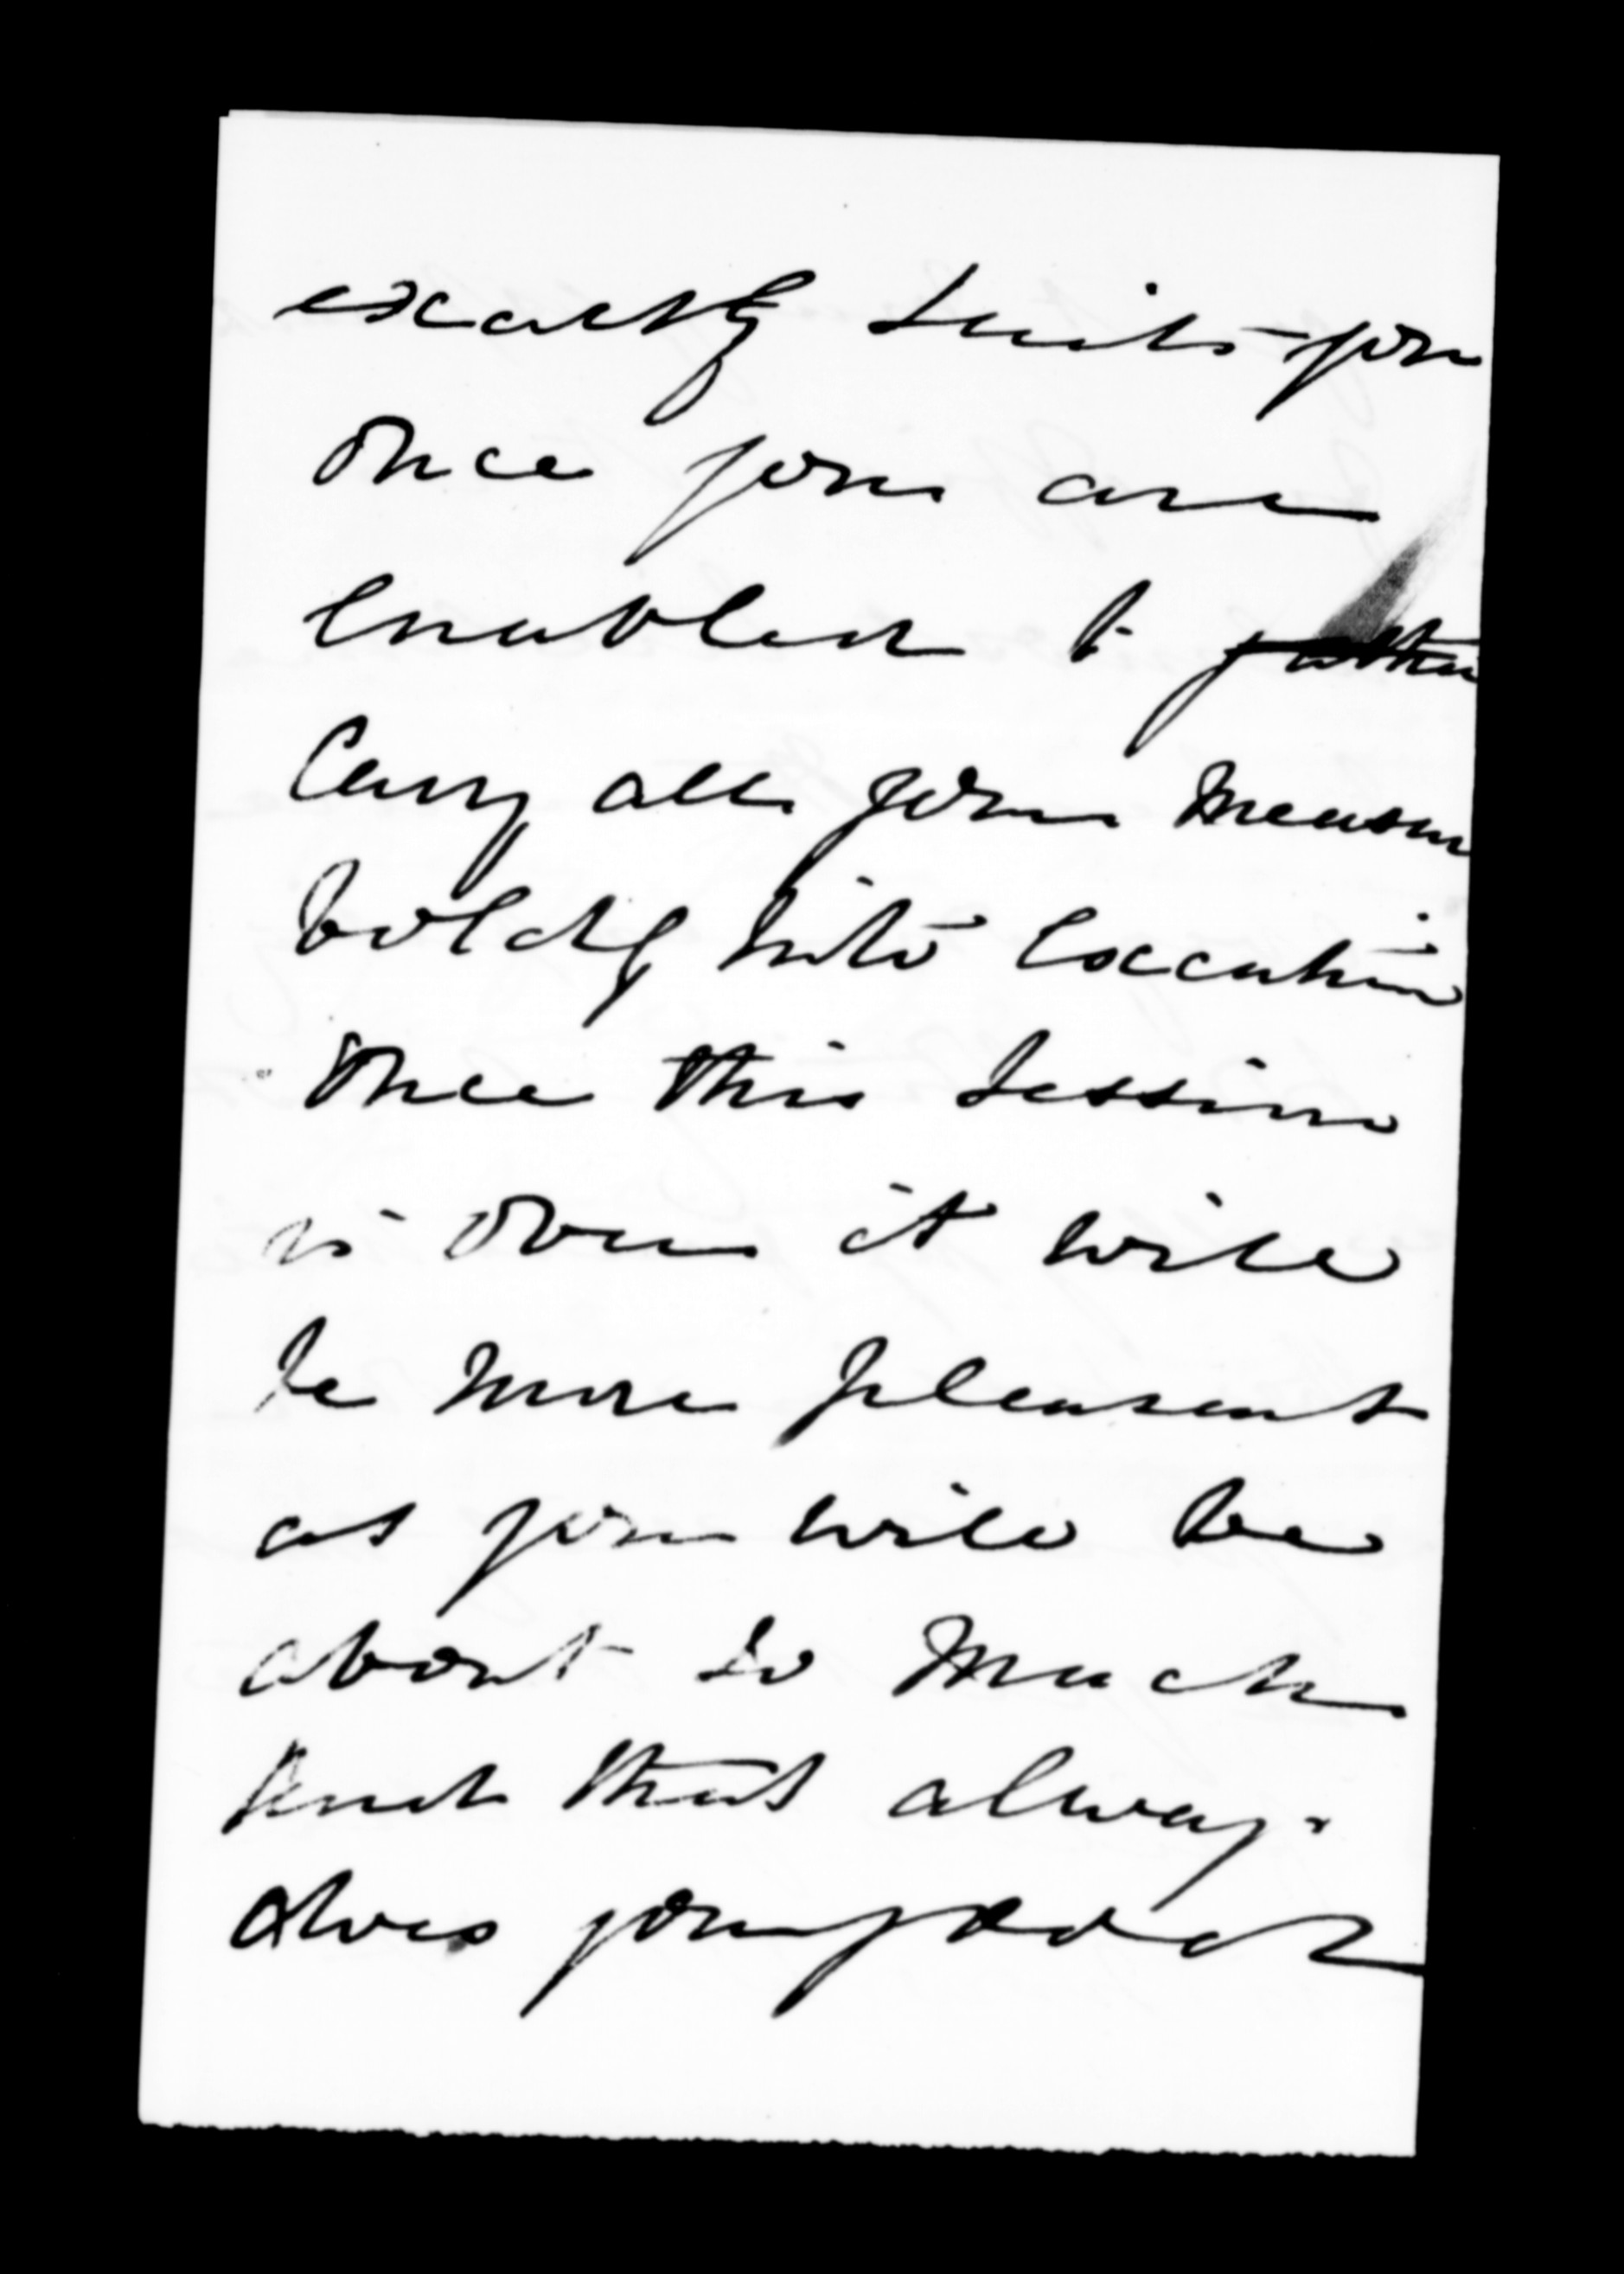 exactly suits you
once you are
enabled to
Carry all your measures
boldly into execution
Once this Session
is over it will
be more pleasant
as you will be
about so much
and that always
does you good